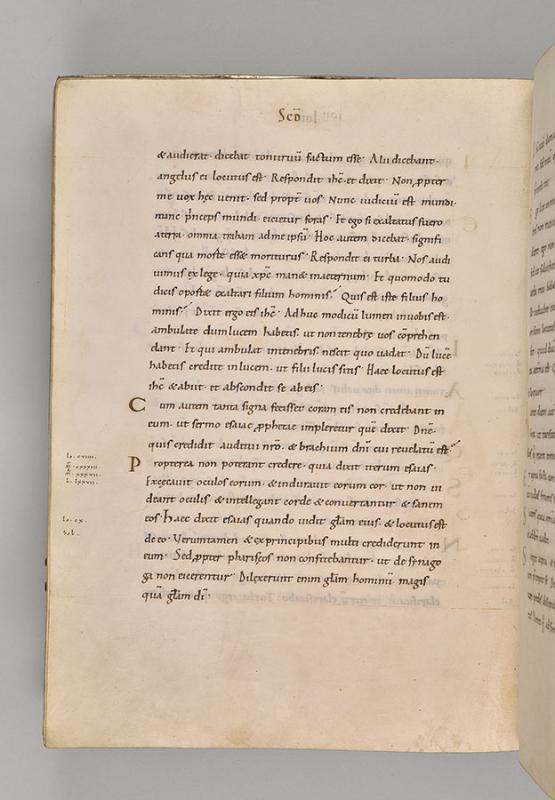 Scd̄
& audierat· dicebat tonitruū factum esse· Alii dicebant·
angelus ei locutus est· Respondit ihc̄· et dixit· Non ꝓpter
me vox hęc venit· sed propt̄ uos· Nunc iudiciū est mundi·
nunc p̄nceps mundi eicietur foras· Et ego si exaltatus fuero
a terra· omnia traham ad me ipsū· Hoc autem dicebat· signifi
cans qua morte esset moriturus· Respondit ei turba· Nos audi
uimus ex lege· quia xp̄c manet in aeternum· Et quomodo tu
dicis oportet exaltari filium hominis· Quis est iste filius ho
minis· Dixit ergo eis ihc̄· Adhuc modicū lumen in uobis est·
ambulate dum lucem habetis· ut non tenebrę uos cōprehen
dant· Et qui ambulat in tenebris nescit quo uadat· Dū lucē
habetis credite in lucem· ut filii lucis sitis· Haec locutus est
ihc̄ & abiit· et abscondit se ab eis·
Cum autem tanta signa fecisset coram eis non credebant in
eum· ut sermo esaiae ꝓphetae impleretur quē dixit· Dn̄e·
quis credidit auditui nr̄o· & brachium dn̄i cui reuelatū est·
Propterea non poterant credere· quia dixit iterum esaias·
Excęcauit oculos eorum· & indurauit eorum cor· ut non ui
deant oculis· & intellegant corde & conuertantur· & sanem
eos· Haec dixit esaias quando uidit gl̄am eius· & locutus est
de eo· Verumtamen & ex principibus multi crediderunt in
eum· Sed ꝓpter phariseos non confitebantur· ut de synago
ga non eicerentur· Dilexerunt enim gl̄am hominū magis
quā gl̄am dī·